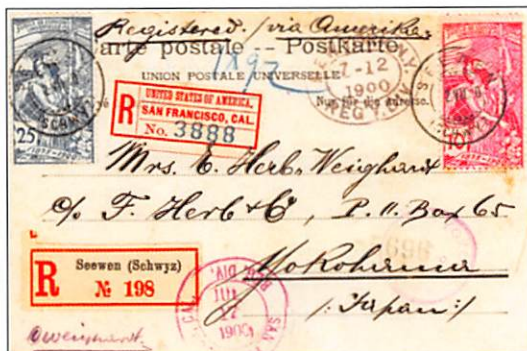 Registered / via Amerika.
Carte postale -- Postkarte
UNION POSTALE UNIVERSELLE
1892
N.Y.
7-12
1900
REG'Y
Nur für die Adresse.
25
SCHWYZ
10
R
UNITED STATES OF AMERICA,
SAN FRANCISCO, CAL.
No. 3888
Mrs. E. Herb-Weighardt
c/o F. Herb & Co, P.O. Box 65
Yokohama
/:Japan:/
R
Seewen (Schwyz)
№ 198
SAN
CAL.
DIV.
1900